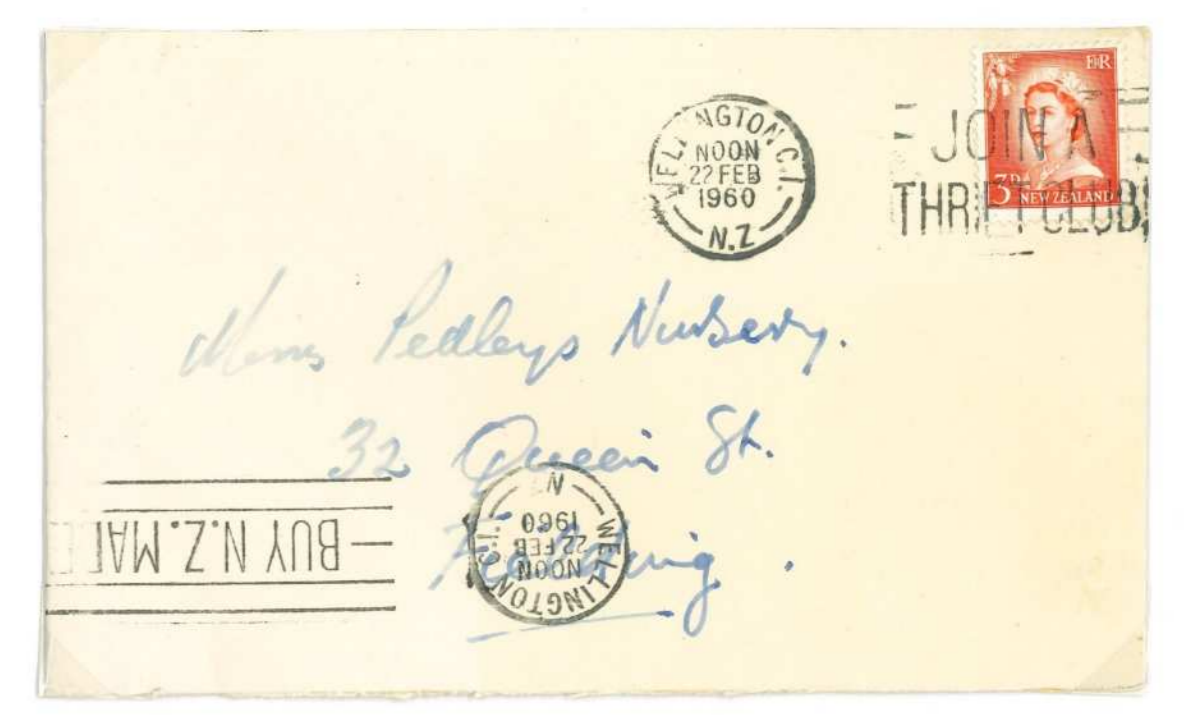 WELLINGTON C.1.
NOON
22 FEB
1960
N.Z
ER
JOIN A
THRIFT CLUB
3D
NEW ZEALAND
Pedleys Nursery.
32 Queen St.
Feilding.
WELLINGTON C.1.
NOON
22 FEB
1960
BUY N.Z.